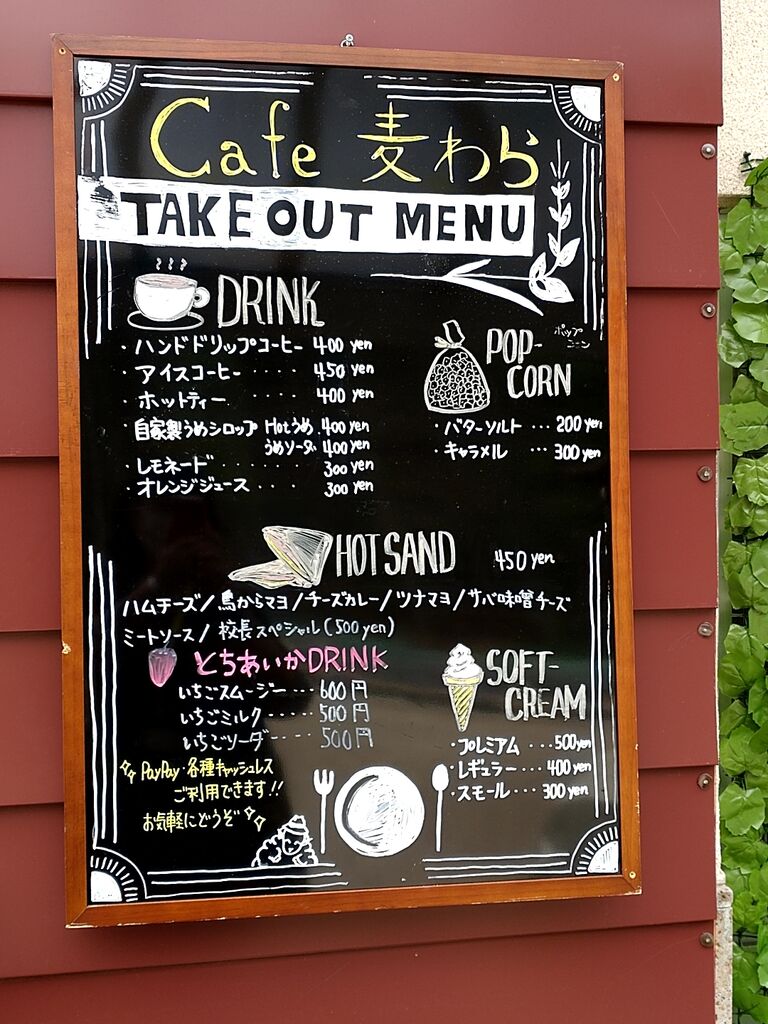 Cafe 麦わら
TAKE OUT MENU
DRINK
・ハンドドリップコーヒー 400 yen
・アイスコーヒー ・・・・ 450 yen
・ホットティー ・・・・ 400 yen
・自家製うめシロップ Hotうめ 400 yen
うめソーダ 400 yen
・レモネード ・・・・・・ 300 yen
・オレンジジュース ・・・ 300 yen
POP-CORN
ポップコーン
・バターソルト ・・・ 200 yen
・キャラメル ・・・ 300 yen
HOT SAND 450 yen
ハムチーズ/鳥からマヨ/チーズカレー/ツナマヨ/サバ味噌チーズ
ミートソース/校長スペシャル(500 yen)
とちあいかDRINK
いちごスムージー ・・・ 600円
いちごミルク ・・・・・ 500円
いちごソーダ ・・・・ 500円
SOFT-CREAM
・プレミアム ・・・ 500 yen
・レギュラー ・・・ 400 yen
・スモール ・・・ 300 yen
PayPay・各種キャッシュレス
ご利用できます!!
お気軽にどうぞ